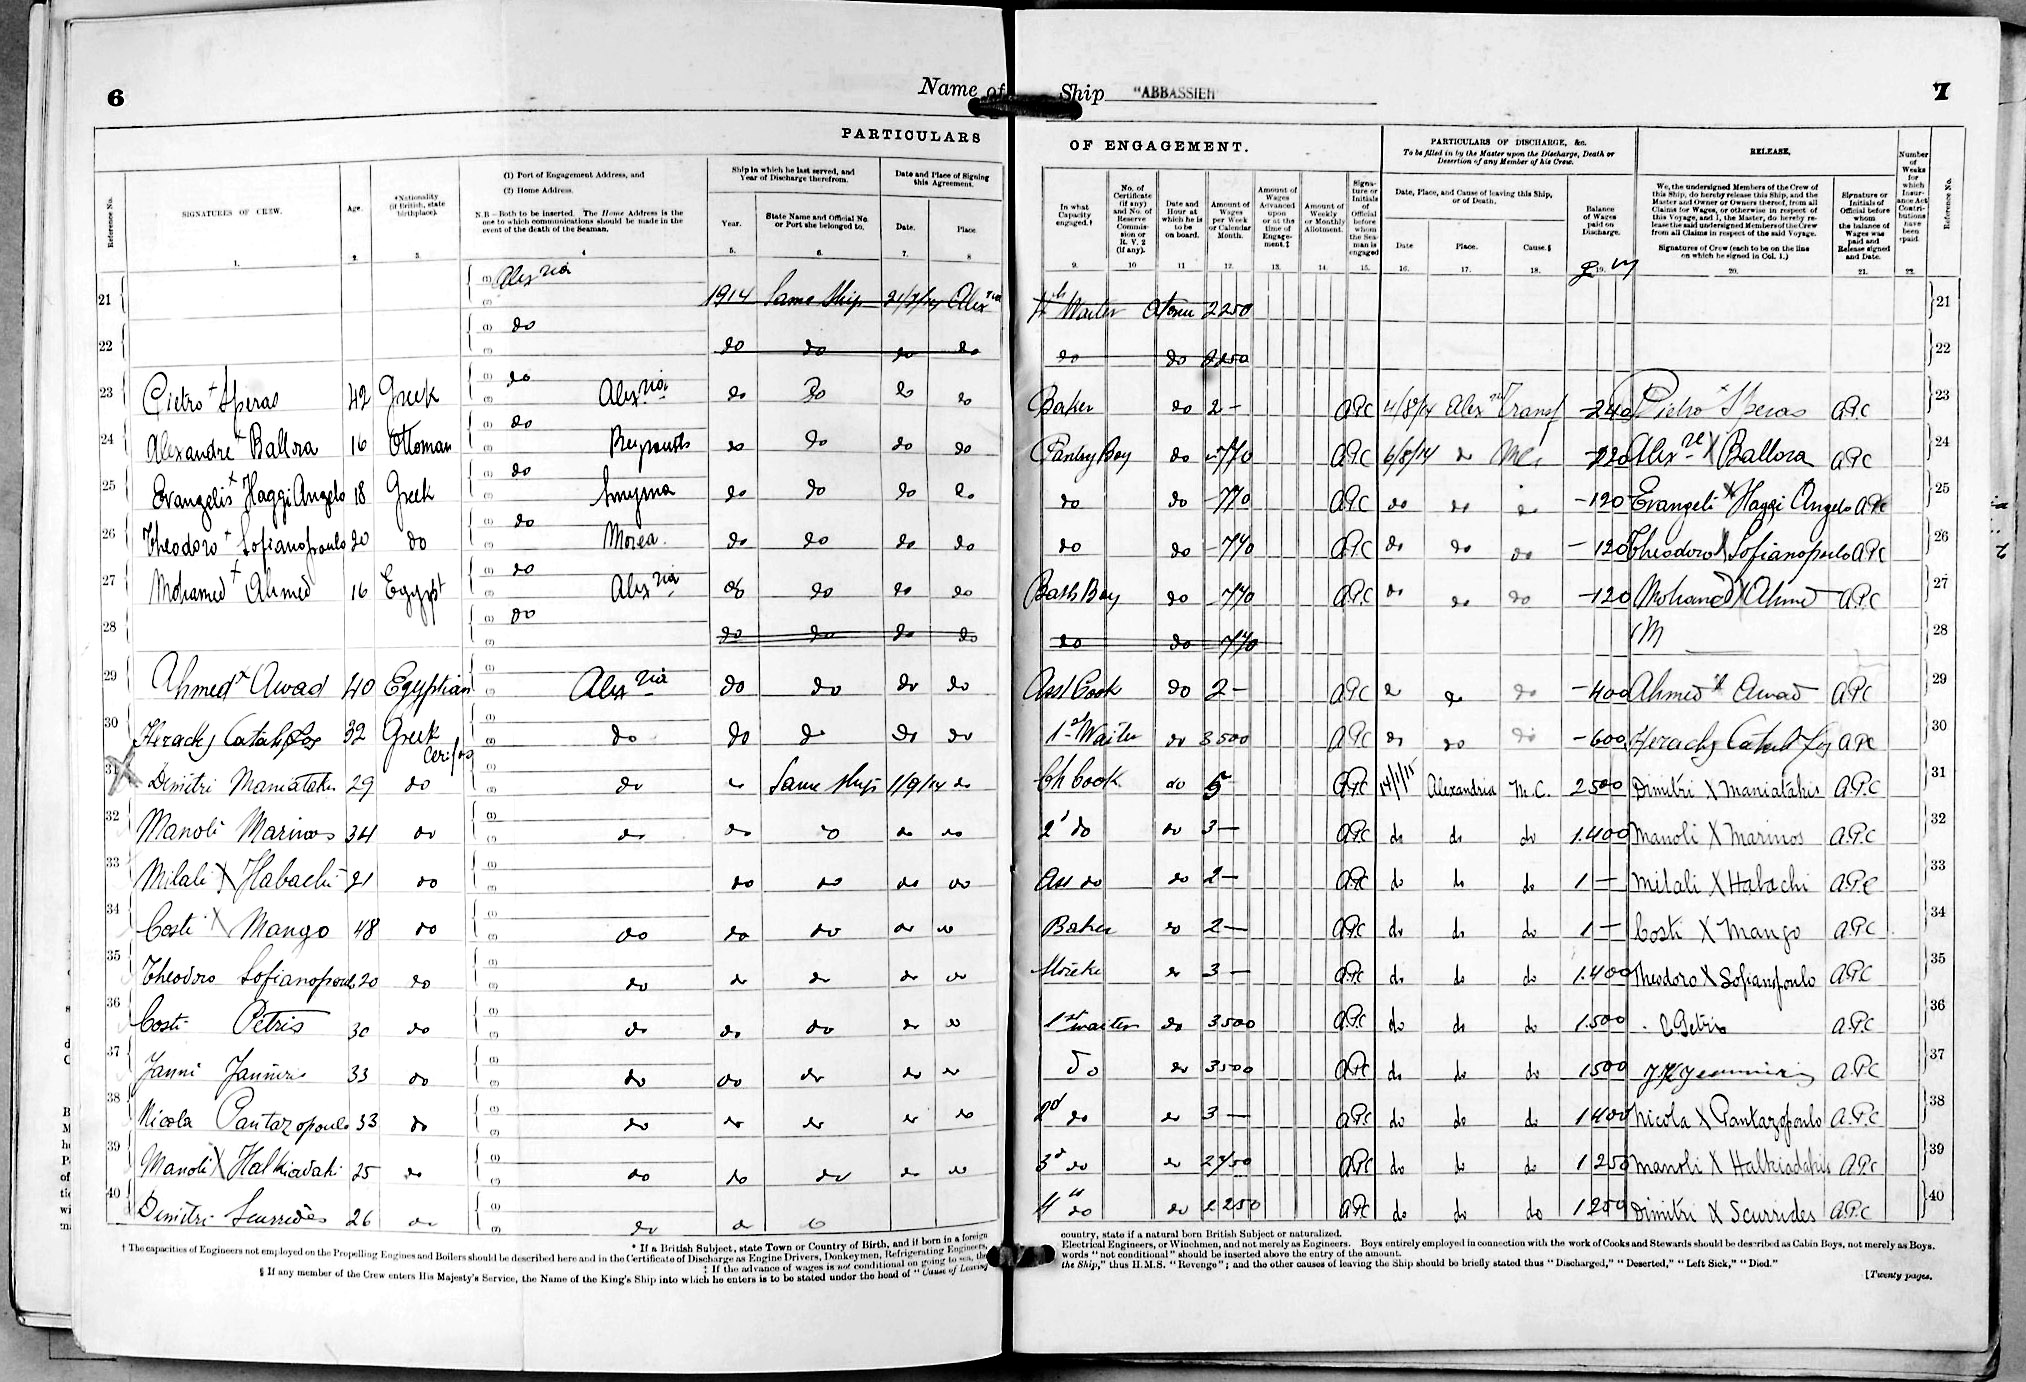 6
Name of Ship "ABBASSIEH"
7
PARTICULARS OF ENGAGEMENT.
PARTICULARS OF DISCHARGE, &c.
To be filled in by the Master upon the Discharge, Death or Desertion of any Member of his Crew.
RELEASE,
Reference No.
SIGNATURES OF CREW.
1.
Age.
2.
*Nationality (if British, state birthplace).
3.
(1) Port of Engagement Address, and
(2) Home Address.
N.B.—Both to be inserted. The Home Address is the one to which communications should be made in the event of the death of the Seaman.
4
Ship in which he last served, and Year of Discharge therefrom.
Year.
5.
State Name and Official No. or Port she belonged to.
6.
Date and Place of Signing this Agreement.
Date.
7.
Place.
8
In what Capacity engaged.†
9.
No. of Certificate (if any) and No. of Reserve Commission or R. V. 2 (if any).
10
Date and Hour at which he is to be on board.
11
Amount of Wages per Week or Calendar Month.
12.
Amount of Wages Advanced upon or at the time of Engagement.‡
13.
Amount of Weekly or Monthly Allotment.
14.
Signature or Initials of Official before whom the Seaman is engaged
15.
Date, Place, and Cause of leaving this Ship, or of Death.
Date
16.
Place.
17.
Cause.§
18.
Balance of Wages paid on Discharge.
19.
We, the undersigned Members of the Crew of this Ship, do hereby release this Ship, and the Master and Owner or Owners thereof, from all Claims for Wages, or otherwise in respect of this Voyage, and I, the Master, do hereby release the said undersigned Members of the Crew from all Claims in respect of the said Voyage.
Signatures of Crew (each to be on the line on which he signed in Col. 1.)
20.
Signature or Initials of Official before whom the balance of Wages was paid and Release signed and Date.
21.
Number of Weeks for which Insurance Act Contributions have been paid.
22.
Reference No.
21 (1) Alexria (2) 1914 Same Ship Alexria Waiter 2250 21
22 (1) do (2) do do do do do do 2250 22
23 Pietro + Speras 42 Greek (1) do (2) Alexria do do do do Baker do 2 — APC 4/8/14 Alexria Transf —240 Pietro + Speras APC 23
24 Alexandre + Ballora 16 Ottoman (1) do (2) Beyrouth do do do do Pantry Boy do —770 APC 6/8/14 do Alexre X Ballora APC 24
25 Evangelis + Haggi Angelo 18 Greek (1) do (2) Smyrna do do do do do do —770 APC do do do —120 Evangeli X Haggi Angelo APC 25
26 Theodoro + Sofianopoulo 20 do (1) do (2) Morea do do do do do do —770 APC do do do —120 Theodoro X Sofianopoulo APC 26
27 Mohamed + Ahmed 16 Egypt (1) do (2) Alexria do do do do Bath Boy do —770 APC do do do —120 Mohamed X Ahmed APC 27
28 (1) (2) do do do do do do —770 28
29 Ahmed + Awad 40 Egyptian (1) (2) Alexria do do do do Asst Cook do 2 — APC do do do —400 Ahmed X Awad APC 29
30 32 Greek Cerifos (1) (2) do do do do do 1st Waiter do 3500 APC do do do —600 APC 30
31 Dimitri Maniatakis 29 do (1) (2) do do Same Ship 1/9/14 do Ch Cook do 5 APC 14/1/15 Alexandria M.C. 2500 Dimitri X Maniatakis A.P.C 31
32 Manoli Marinos 34 do (1) (2) do do do do do 2d do do 3 — APC do do do 1.400 Manoli X Marinos A.P.C 32
33 Milali X Habachi 21 do (1) (2) do do do do Ass do do 2 — APC do do do 1 — Milali X Habachi A.P.C 33
34 Costi X Mango 48 do (1) (2) do do do do do Baker do 2 — APC do do do 1 — Costi X Mango A.P.C 34
35 Theodoro Sofianopoulo 20 do (1) (2) do do do do do do 3 — APC do do do 1.400 Theodoro X Sofianopoulo A.P.C 35
36 Costi Petris 30 do (1) (2) do do do do do 1st waiter do 3500 APC do do do 1.500 C Petris A.P.C 36
37 Janni 33 do (1) (2) do do do do do Do do 3500 APC do do do 1500 A.P.C 37
38 Nicola Pantazopoulo 33 do (1) (2) do do do do do 2d do do 3 — APC do do do 1400 Nicola X Pantazopoulo A.P.C 38
39 Manoli X Halkiadaki 25 do (1) (2) do do do do do 3d do do 2750 APC do do do 1250 Manoli X Halkiadakis A.P.C 39
40 Dimitri Scurrides 26 do (1) (2) do do do 4th do do 2250 APC do do do 1250 Dimitri X Scurrides A.P.C 40
* If a British Subject, state Town or Country of Birth, and if born in a foreign country, state if a natural born British Subject or naturalized.
† The capacities of Engineers not employed on the Propelling Engines and Boilers should be described here and in the Certificate of Discharge as Engine Drivers, Donkeymen, Refrigerating Engineers, Electrical Engineers, or Winchmen, and not merely as Engineers. Boys entirely employed in connection with the work of Cooks and Stewards should be described as Cabin Boys, not merely as Boys.
‡ If the advance of wages is not conditional on going to sea, the words "not conditional" should be inserted above the entry of the amount.
§ If any member of the Crew enters His Majesty's Service, the Name of the King's Ship into which he enters is to be stated under the head of "Cause of Leaving the Ship," thus H.M.S. "Revenge"; and the other causes of leaving the Ship should be briefly stated thus "Discharged," "Deserted," "Left Sick," "Died."
[Twenty pages.